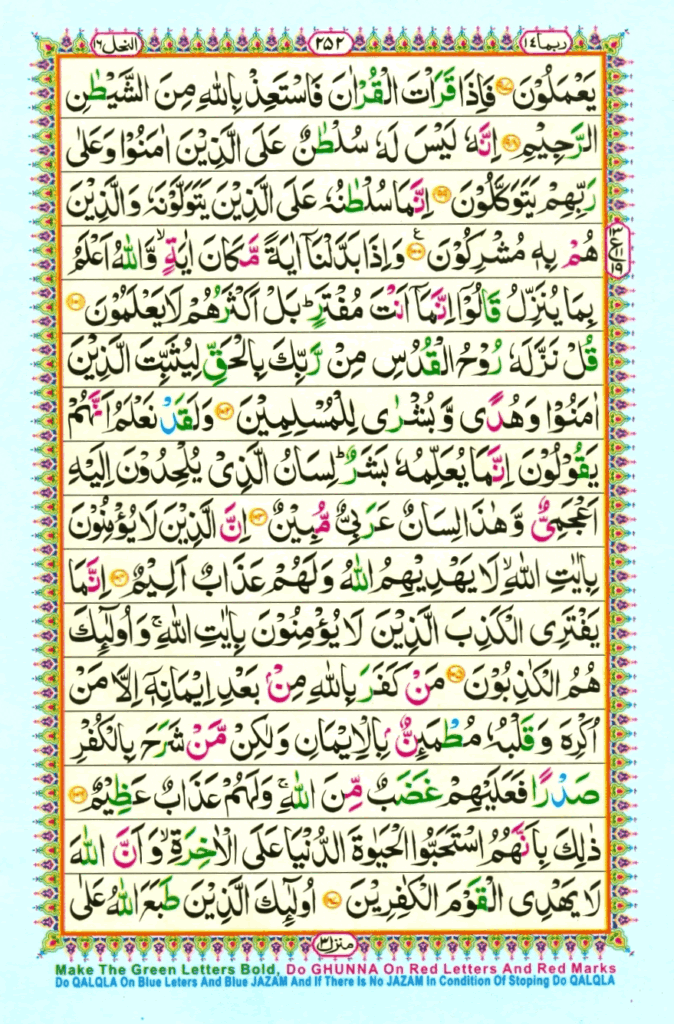 ربما ۱۴
۲۵۲
النحل ۱۶
يَعْمَلُوْنَ ﴿۹۷﴾ فَاِذَا قَرَاْتَ الْقُرْاٰنَ فَاسْتَعِذْ بِاللّٰهِ مِنَ الشَّيْطٰنِ
الرَّجِيْمِ ﴿۹۸﴾ اِنَّهٗ لَيْسَ لَهٗ سُلْطٰنٌ عَلَى الَّذِيْنَ اٰمَنُوْا وَعَلٰى
رَبِّهِمْ يَتَوَكَّلُوْنَ ﴿۹۹﴾ اِنَّمَا سُلْطٰنُهٗ عَلَى الَّذِيْنَ يَتَوَلَّوْنَهٗ وَالَّذِيْنَ
هُمْ بِهٖ مُشْرِكُوْنَ ﴿۱۰۰﴾ ع وَاِذَا بَدَّلْنَاۤ اٰيَةً مَّكَانَ اٰيَةٍ ۙ وَّاللّٰهُ اَعْلَمُ
بِمَا يُنَزِّلُ قَالُوْۤا اِنَّمَاۤ اَنْتَ مُفْتَرٍ ؕ بَلْ اَكْثَرُهُمْ لَا يَعْلَمُوْنَ ﴿۱۰۱﴾
قُلْ نَزَّلَهٗ رُوْحُ الْقُدُسِ مِنْ رَّبِّكَ بِالْحَقِّ لِيُثَبِّتَ الَّذِيْنَ
اٰمَنُوْا وَهُدًى وَّبُشْرٰى لِلْمُسْلِمِيْنَ ﴿۱۰۲﴾ وَلَقَدْ نَعْلَمُ اَنَّهُمْ
يَقُوْلُوْنَ اِنَّمَا يُعَلِّمُهٗ بَشَرٌ ؕ لِسَانُ الَّذِيْ يُلْحِدُوْنَ اِلَيْهِ
اَعْجَمِيٌّ وَّهٰذَا لِسَانٌ عَرَبِيٌّ مُّبِيْنٌ ﴿۱۰۳﴾ اِنَّ الَّذِيْنَ لَا يُؤْمِنُوْنَ
بِاٰيٰتِ اللّٰهِ ۙ لَا يَهْدِيْهِمُ اللّٰهُ وَلَهُمْ عَذَابٌ اَلِيْمٌ ﴿۱۰۴﴾ اِنَّمَا
يَفْتَرِى الْكَذِبَ الَّذِيْنَ لَا يُؤْمِنُوْنَ بِاٰيٰتِ اللّٰهِ ۚ وَاُولٰٓئِكَ
هُمُ الْكٰذِبُوْنَ ﴿۱۰۵﴾ مَنْ كَفَرَ بِاللّٰهِ مِنْۢ بَعْدِ اِيْمَانِهٖۤ اِلَّا مَنْ
اُكْرِهَ وَقَلْبُهٗ مُطْمَئِنٌّۢ بِالْاِيْمَانِ وَلٰكِنْ مَّنْ شَرَحَ بِالْكُفْرِ
صَدْرًا فَعَلَيْهِمْ غَضَبٌ مِّنَ اللّٰهِ ۚ وَلَهُمْ عَذَابٌ عَظِيْمٌ ﴿۱۰۶﴾
ذٰلِكَ بِاَنَّهُمُ اسْتَحَبُّوا الْحَيٰوةَ الدُّنْيَا عَلَى الْاٰخِرَةِ ۙ وَاَنَّ اللّٰهَ
لَا يَهْدِى الْقَوْمَ الْكٰفِرِيْنَ ﴿۱۰۷﴾ اُولٰٓئِكَ الَّذِيْنَ طَبَعَ اللّٰهُ عَلٰى
منزل ۳
Make The Green Letters Bold, Do GHUNNA On Red Letters And Red Marks
Do QALQLA On Blue Leters And Blue JAZAM And If There Is No JAZAM In Condition Of Stoping Do QALQLA